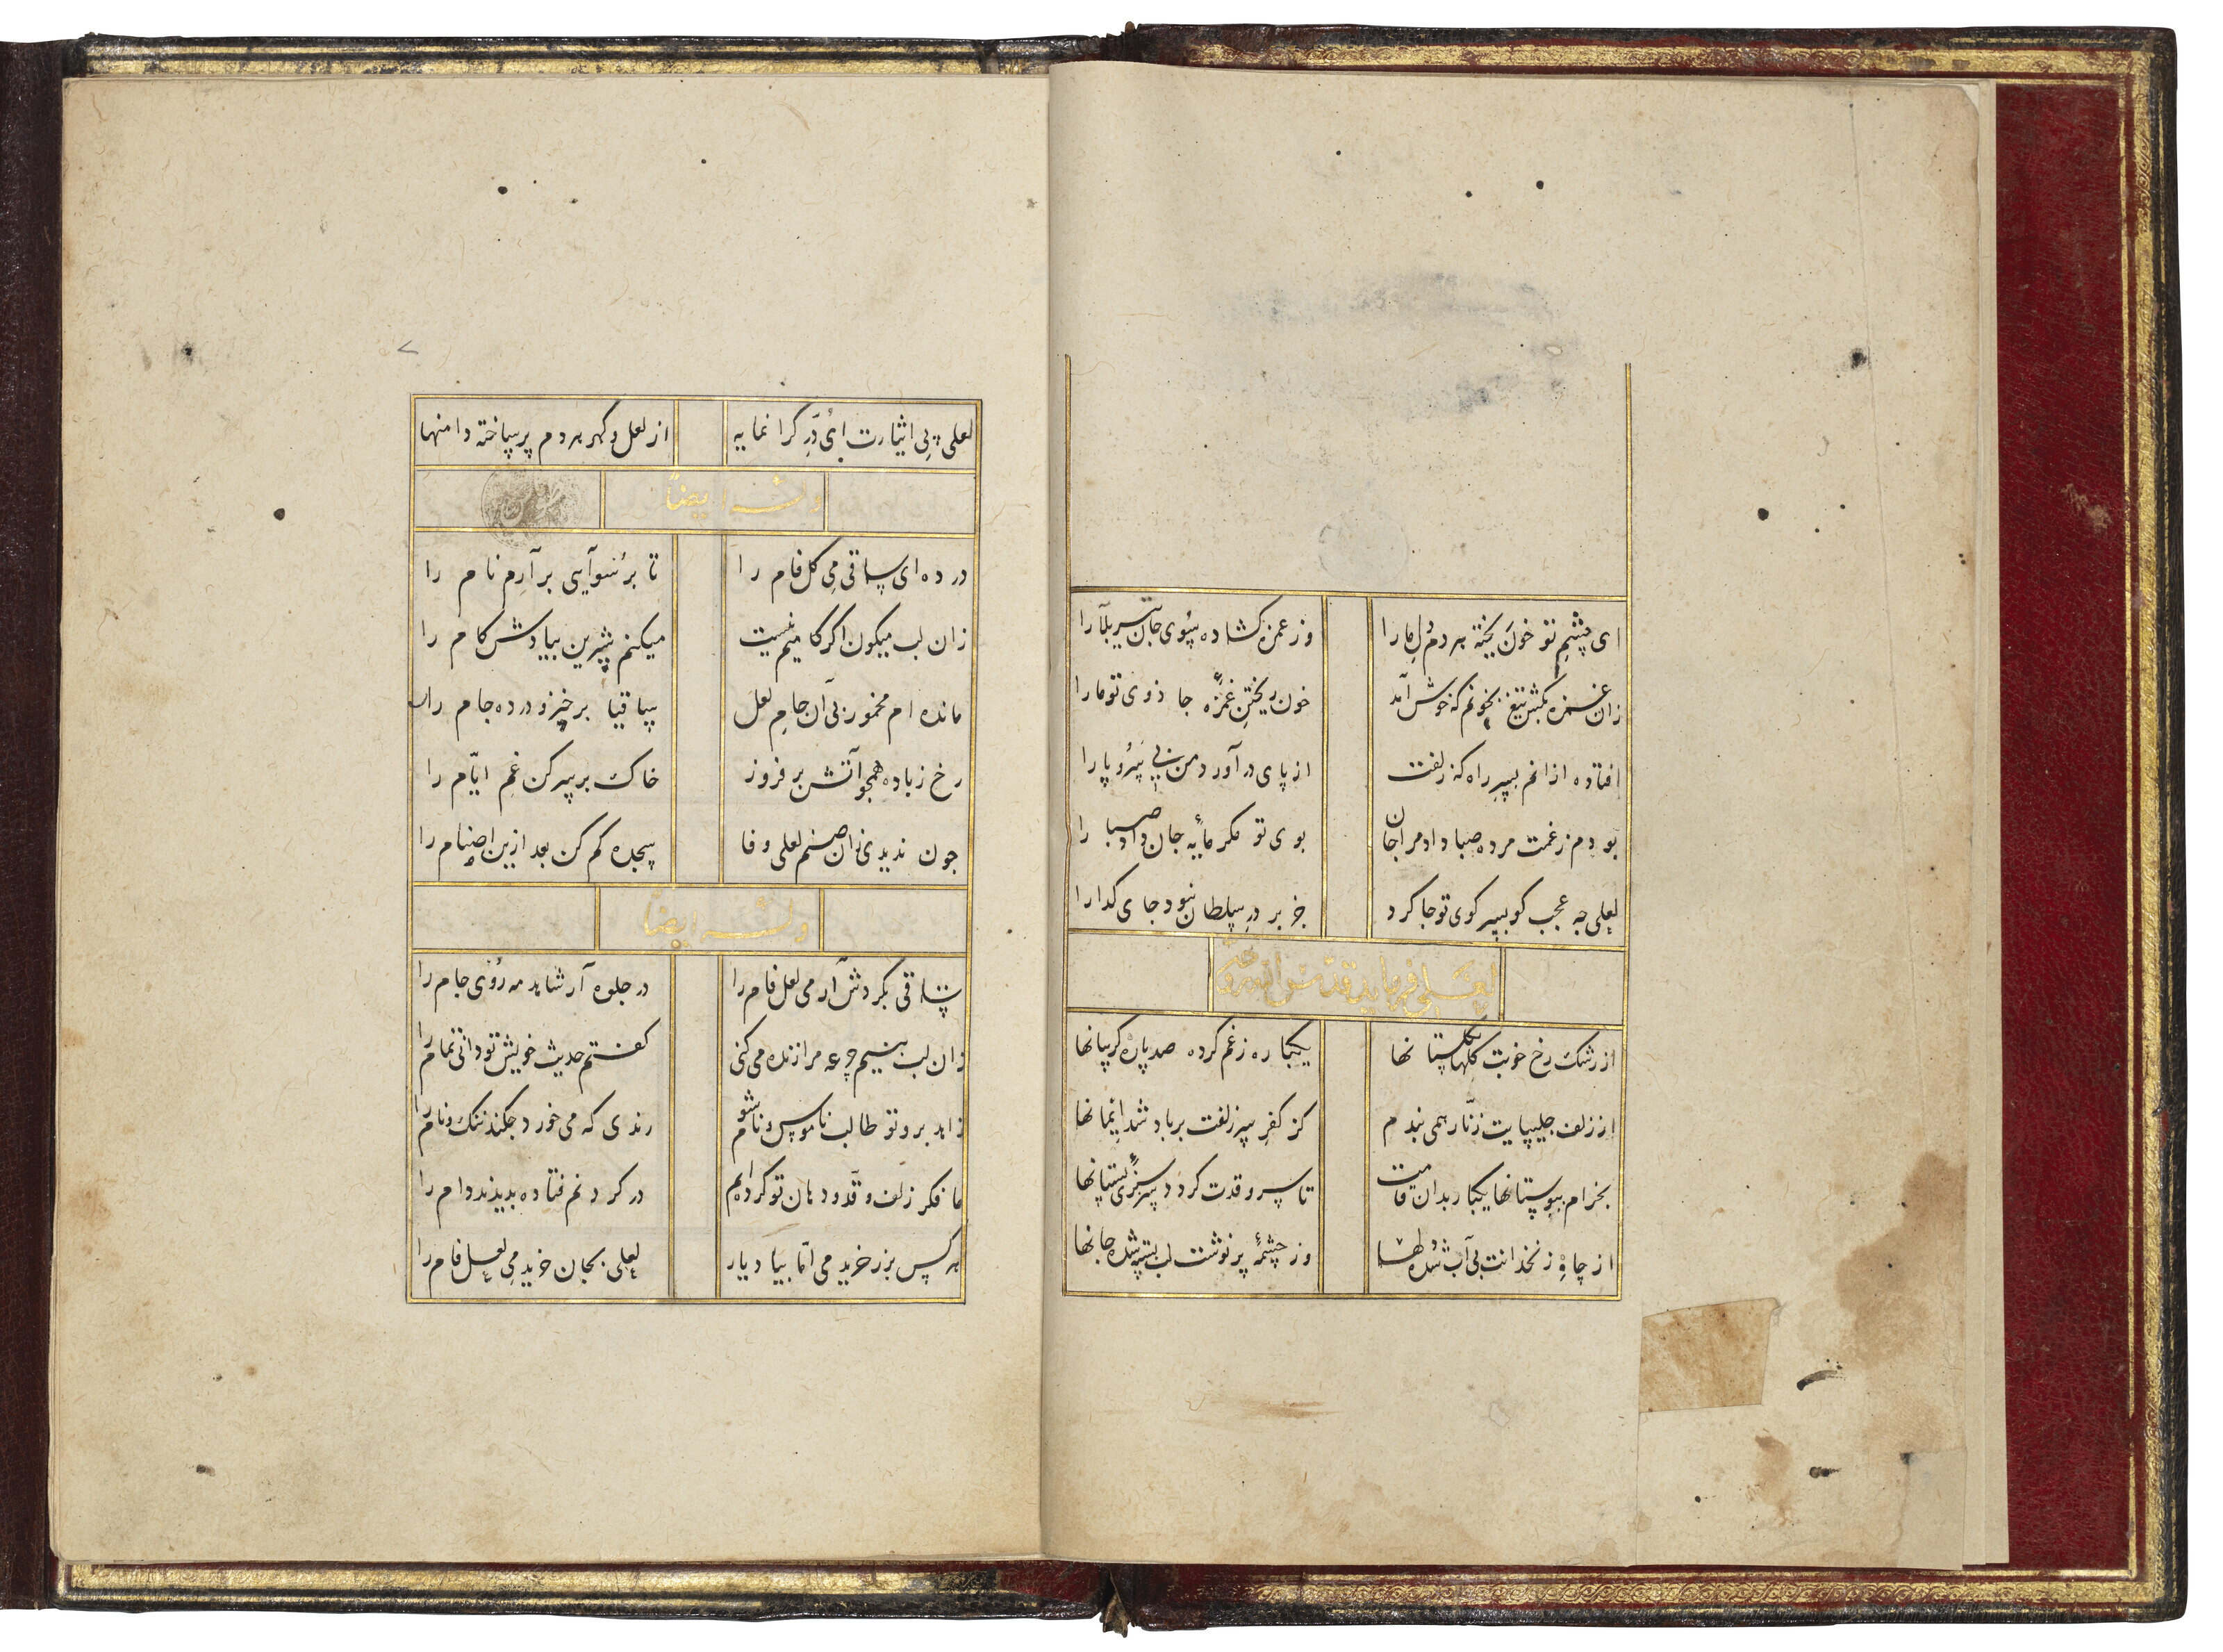 ای چشم تو خون ریخته هر دم دل ما را
وز غمزه کشاده بسوی جان تیر بلا را
زان غمزه بکش تیغ بخونم که خوش آمد
خون ریختن غمزه جادوی تو ما را
افتاده ازانم بسر راه که زلفت
از پای در آورد من بی سر و پا را
بودم ز غمت مرده صبا داد مرا جان
بوی تو مکر مایه جان داد صبا را
لعلی چه عجب کو بسر کوی تو جا کرد
جز بر در سلطان نبود جای کدا را
لعلی فرماید قدس الله روحه
از رشک رخ خوبت کلها بکلستانها
یکباره ز غم کرده صد پاره کریبانها
از زلف جلیپایت زنّار همی بندم
کز کفر سر زلفت برباد شد ایمانها
بخرام ببوستانها یکبار بدان قامت
تا سرو قدت کردد سرسبزی بستانها
از چاه زنخدانت بی آب شده
وز چشمهٔ پر نوشت لب بسته شده جانها
لعلی پی ایثارت ای دُرّ کرانمایه
از لعل و کهر هر دم پر ساخته دامنها
وله ایضاً
در ده ای ساقی می کل فام را
تا برسوآیی بر آرم نام را
زان لب میکون اکر کامیم نیست
میکنم شیرین بیادش کام را
مانده ام مخمور بی آن جام لعل
ساقیا برخیز و در ده جام را
رخ ز باده همجو آتش بر فروز
خاک بر سر کن غم ایّام را
جون ندیدی زان صنم لعلی وفا
سجده کم کن بعد ازین اصنام را
وله ایضاً
ساقی بکردش آر می لعل فام را
در جلوه آر شاهد مه روی جام را
زان لب بنیم جرعه مرا زنده می کنی
کفتم حدیث خویش تو دانی تمام را
زاهد برو تو طالب ناموس و نام شو
رندی که می خورد جکند ننک و نام را
ما فکر زلف و قد و دهان تو کرده ایم
در کردنم فتاده بدیدند دام را
هر کس بزر خرید می امّا بیاد یار
لعلی بجان خرید می لعل فام را